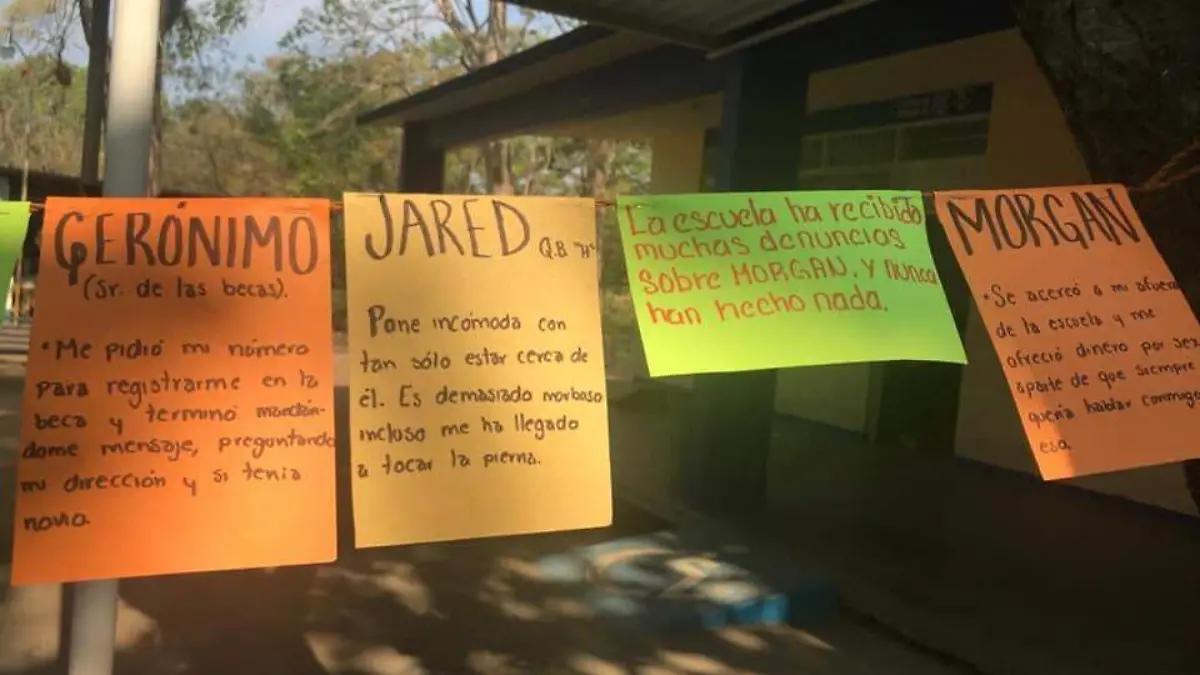 GERÓNIMO
(Sr. de las becas).
•Me pidió mi número
para registrarme en la
beca y terminó mandán-
dome mensaje, preguntando
mi dirección y si tenia
novio.
JARED Q.B "H"
Pone incómoda con
tan sólo estar cerca de
él. Es demasiado morboso
incluso me ha llegado
a tocar la pierna.
La escuela ha recibido
muchas denuncias
sobre MORGAN. Y nunca
han hecho nada.
MORGAN
•Se acercó a mi afuera
de la escuela y me
ofreció dinero por sexo
aparte de que siempre
quería hablar conmigo
eso.